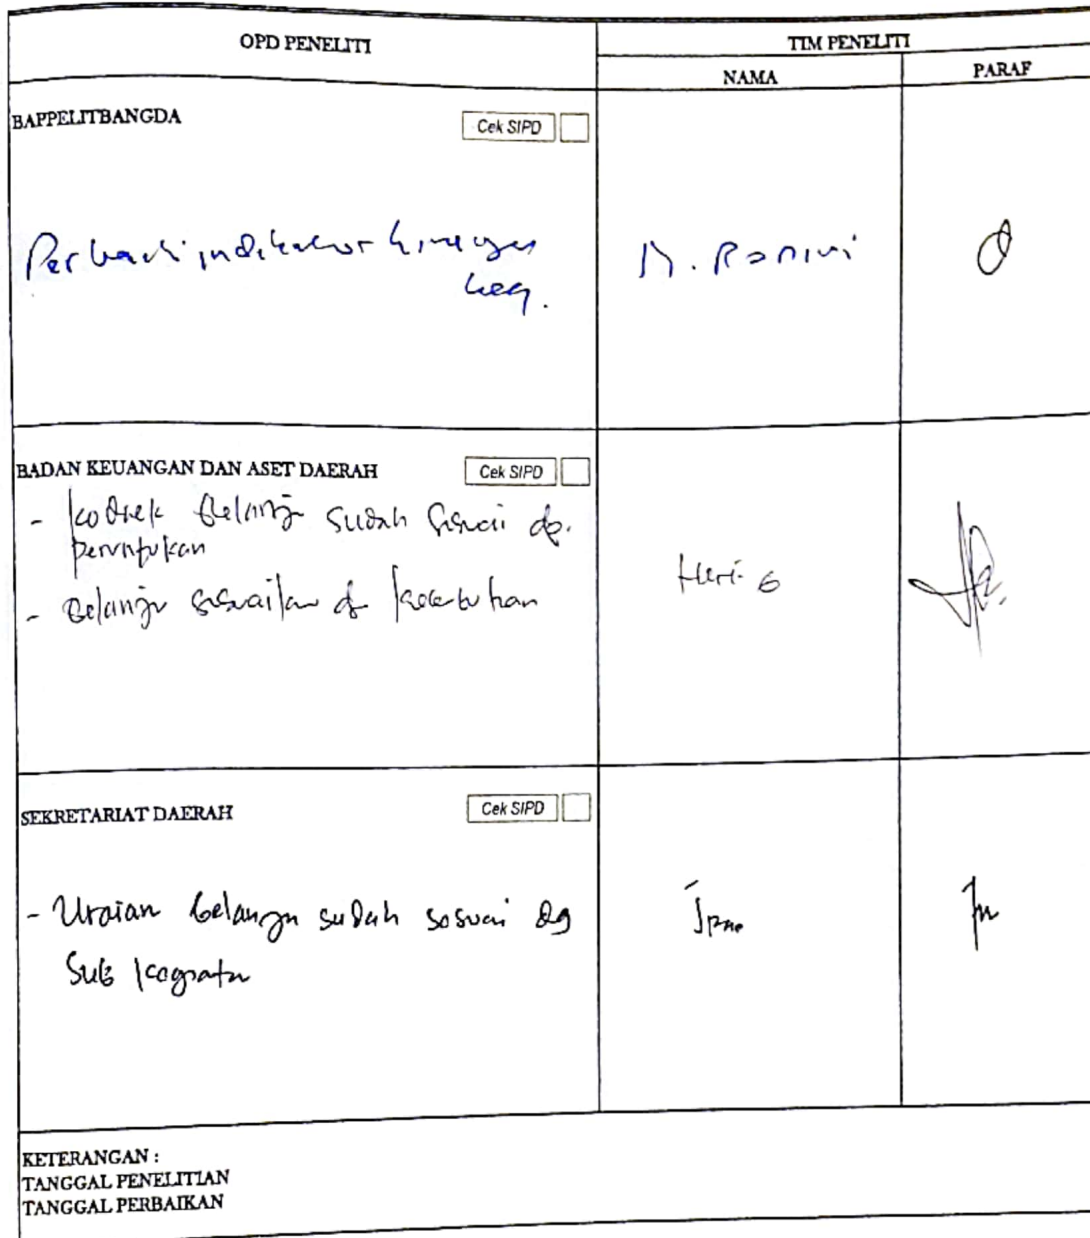 OPD PENELITI
TIM PENELITI
NAMA
PARAF
BAPPELITBANGDA
Cek SIPD
indikator
keg.
BADAN KEUANGAN DAN ASET DAERAH
Cek SIPD
- kodrek Belanja sudah sesuai dg.
peruntukan
- Belanja sesuaikan dg kebutuhan
Heri
SEKRETARIAT DAERAH
Cek SIPD
- Uraian belanja sudah sesuai dg
Sub kegiatan
KETERANGAN :
TANGGAL PENELITIAN
TANGGAL PERBAIKAN